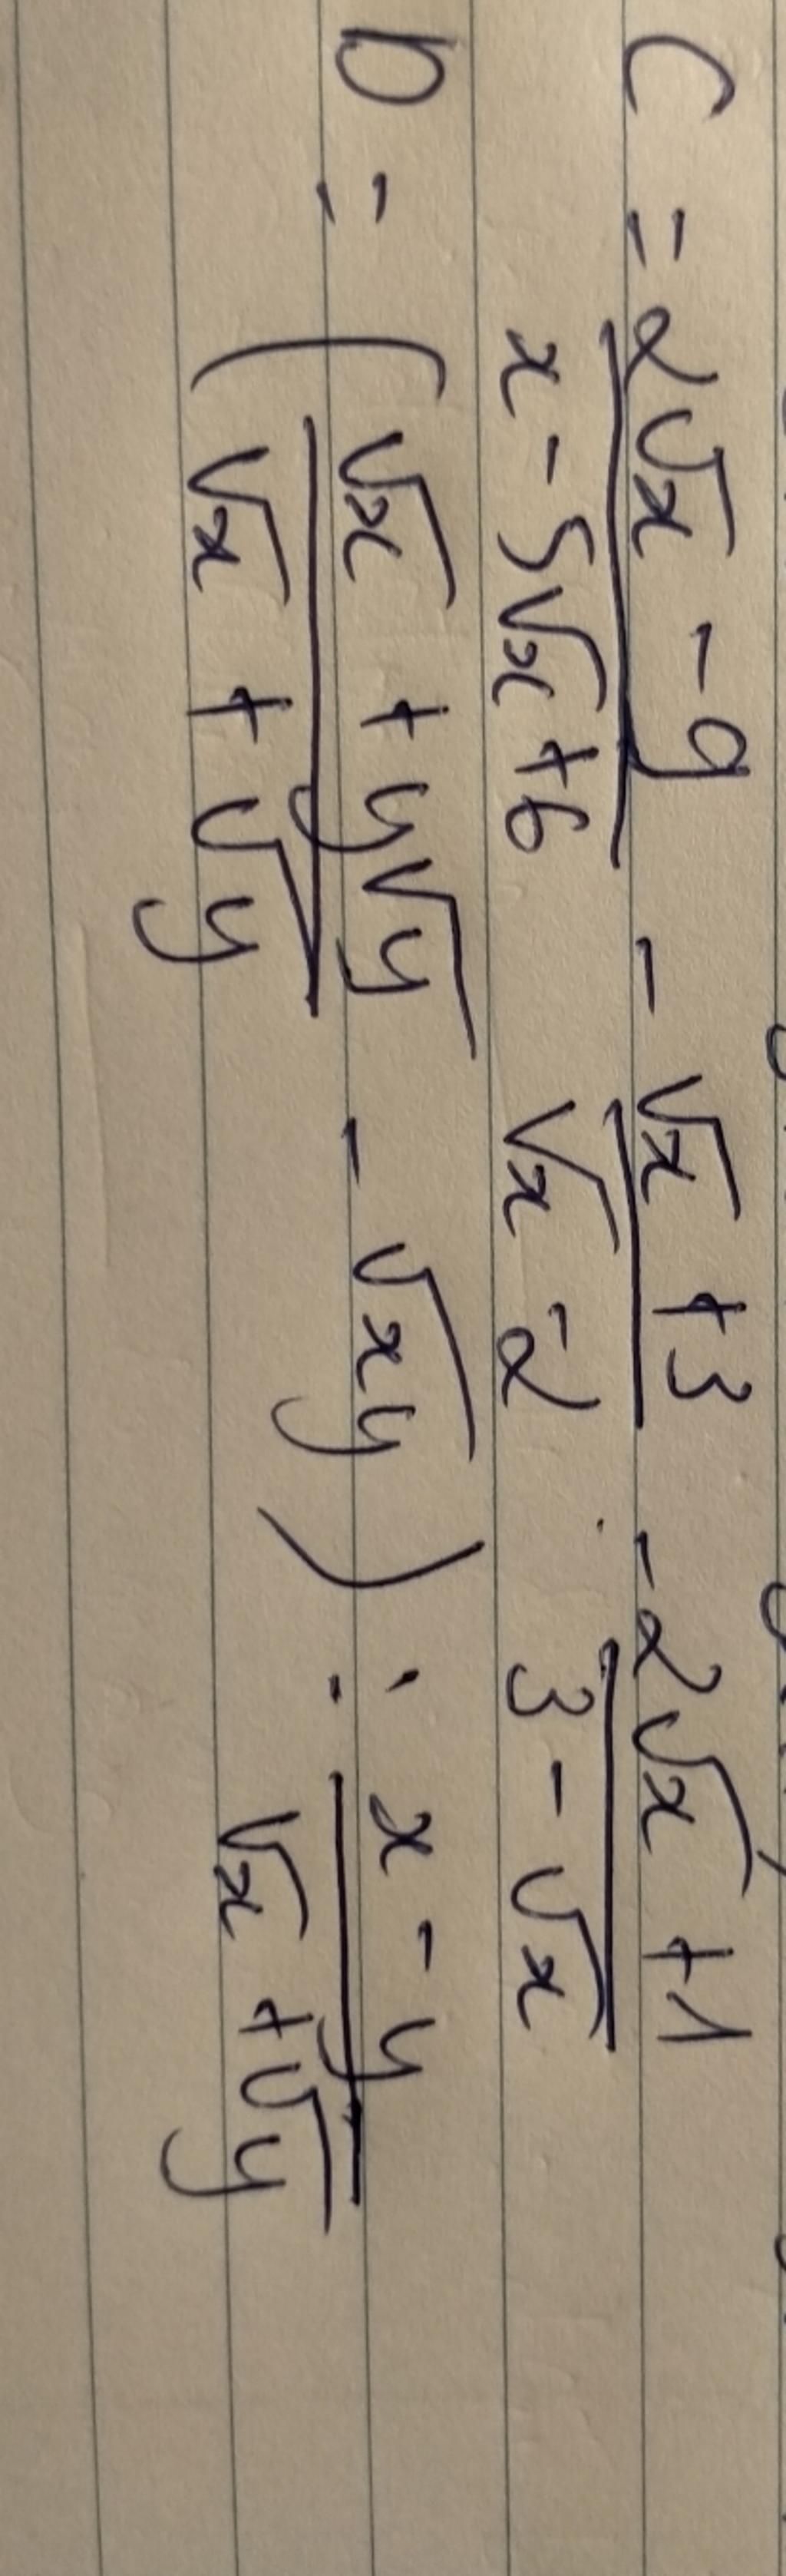 C = (2√x - 9)/(x - 5√x + 6) - (√x + 3)/(√x - 2) - (2√x + 1)/(3 - √x)
D = ((√x + y√y)/(√x + √y) - √xy) : (x - y)/(√x + √y)